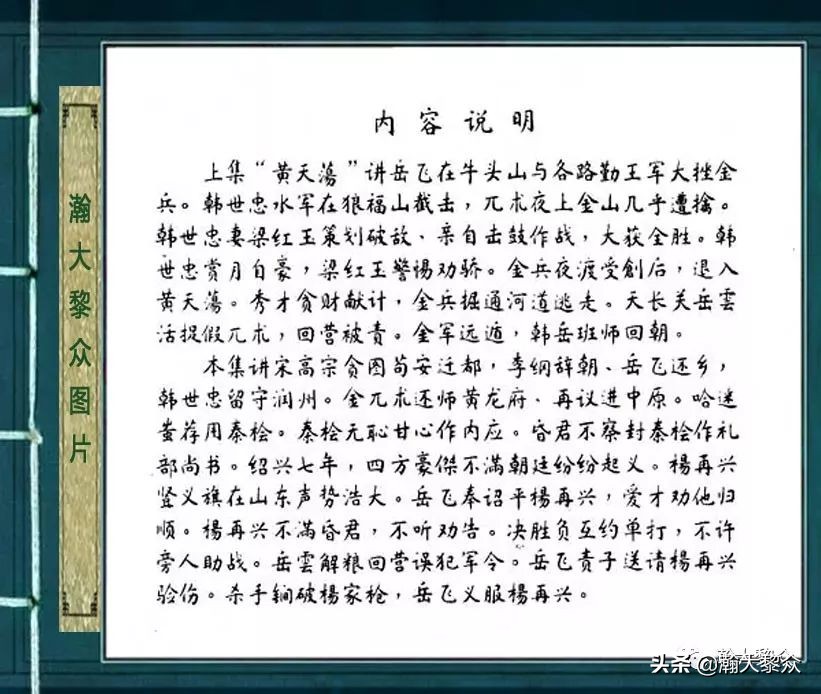 内容说明
上集“黄天荡”讲岳飞在牛头山与各路勤王军大挫金
兵。韩世忠水军在狼福山截击，兀术夜上金山几乎遭擒。
韩世忠妻梁红玉策划破敌、亲自击鼓作战，大获全胜。韩
世忠赏月自豪，梁红玉警惕劝骄。金兵夜渡受創后，退入
黄天荡。秀才贪财献计，金兵掘通河道逃走。天长关岳雲
活捉假兀术，回营被责。金军远遁，韩岳班师回朝。
本集讲宋高宗贪图苟安迁都，李纲辞朝、岳飞还乡，
韩世忠留守润州。金兀术还师黄龙府、再议进中原。哈迷
蚩荐用秦桧。秦桧无恥甘心作内应。昏君不察封秦桧作礼
部尚书。绍兴七年，四方豪傑不满朝廷纷纷起义。楊再兴
竖义旗在山东声势浩大。岳飞奉诏平楊再兴，爱才劝他归
顺。楊再兴不满昏君，不听劝告。决胜负互约单打，不许
旁人助战。岳雲解粮回营误犯军令。岳飞责子送请楊再兴
验伤。杀手锏破楊家枪，岳飞义服楊再兴。
瀚大黎众图片
瀚大黎众
头条@瀚大黎众